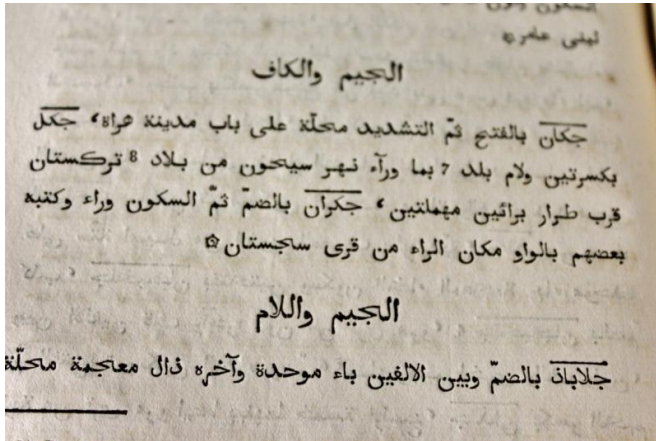 لبنى عامر ۞
الجيم والكاف
جكان بالفتح ثمّ التشديد محلّة على باب مدينة هراة، جكل
بكسرتين ولام بلد 7 بما ورآء نهر سيحون من بلاد 8 تركستان
قرب طرار برائين مهملتين، جكران بالضمّ ثمّ السكون وراء وكتبه
بعضهم بالواو مكان الراء من قرى سجستان ۞
الجيم واللام
جلاباذ بالضمّ وبين الالفين باء موحدة وآخره ذال معجمة محلّة